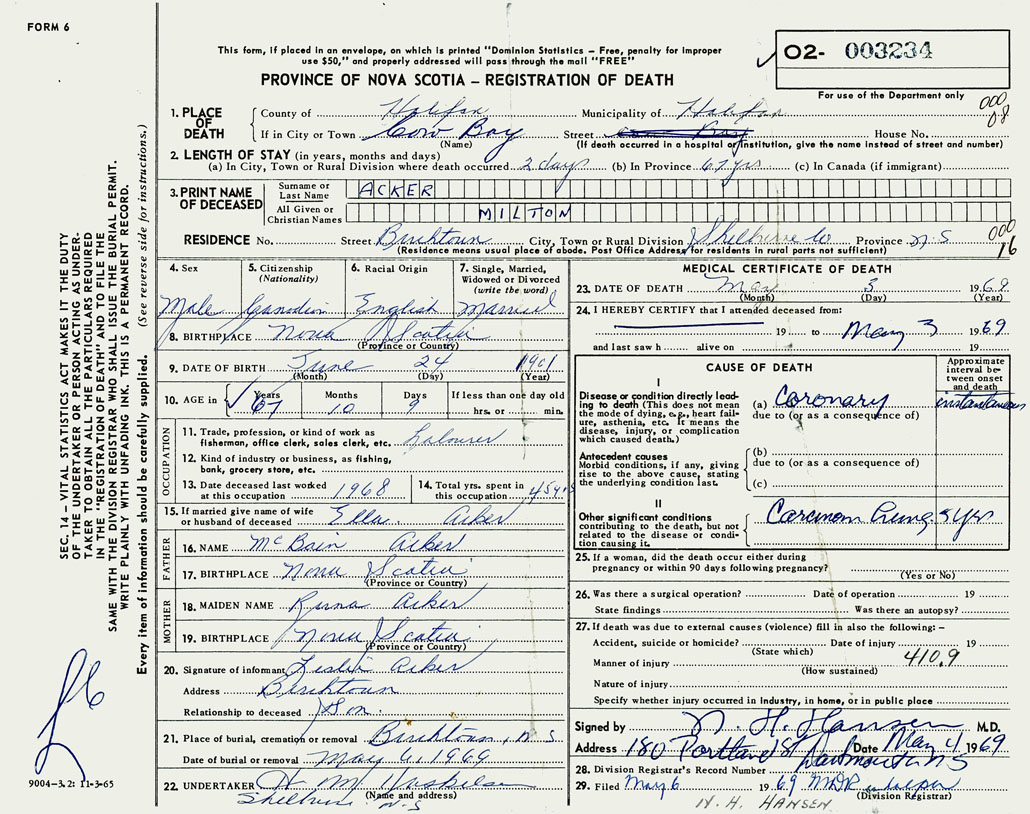 FORM 6
This form, if placed in an envelope, on which is printed "Dominion Statistics – Free, penalty for improper
use $50," and properly addressed will pass through the mail "FREE"
PROVINCE OF NOVA SCOTIA – REGISTRATION OF DEATH
O2- 003234
For use of the Department only
000
08
1. PLACE OF DEATH
County of Halifax Municipality of Halifax
If in City or Town Cow Bay Street House No.
(Name) (If death occurred in a hospital or institution, give the name instead of street and number)
2. LENGTH OF STAY (in years, months and days)
(a) In City, Town or Rural Division where death occurred 2 days (b) In Province 67 yrs (c) In Canada (if immigrant)
3. PRINT NAME OF DECEASED
Surname or Last Name ACKER
All Given or Christian Names MILTON
RESIDENCE No. Street Birchtown City, Town or Rural Division Shelburne Co Province N.S
(Residence means usual place of abode. Post Office Address for residents in rural parts not sufficient)
000
16
4. Sex Male
5. Citizenship (Nationality) Canadian
6. Racial Origin English
7. Single, Married, Widowed or Divorced (write the word) Married
8. BIRTHPLACE Nova Scotia
(Province or Country)
9. DATE OF BIRTH June 24 1901
(Month) (Day) (Year)
10. AGE in Years 67 Months 10 Days 9 If less than one day old hrs. or min.
OCCUPATION
11. Trade, profession, or kind of work as fisherman, office clerk, sales clerk, etc. Labourer
12. Kind of industry or business, as fishing, bank, grocery store, etc.
13. Date deceased last worked at this occupation 1968
14. Total yrs. spent in this occupation 45 yrs
15. If married give name of wife or husband of deceased Ella Acker
FATHER
16. NAME McBain Acker
17. BIRTHPLACE Nova Scotia
(Province or Country)
MOTHER
18. MAIDEN NAME Acker
19. BIRTHPLACE Nova Scotia
(Province or Country)
20. Signature of informant Leslie Acker
Address Birchtown
Relationship to deceased Son.
21. Place of burial, cremation or removal Birchtown, N.S
Date of burial or removal May 6, 1969
22. UNDERTAKER H M
(Name and address)
Shelburne N-S
MEDICAL CERTIFICATE OF DEATH
23. DATE OF DEATH May 3 1969
(Month) (Day) (Year)
24. I HEREBY CERTIFY that I attended deceased from:
19 to May 3 1969
and last saw h alive on 19
CAUSE OF DEATH
Approximate interval between onset and death
I
Disease or condition directly leading to death (This does not mean the mode of dying, e.g., heart failure, asthenia, etc. It means the disease, injury, or complication which caused death.)
(a) Coronary instantaneous
due to (or as a consequence of)
Antecedent causes
Morbid conditions, if any, giving rise to the above cause, stating the underlying condition last.
(b)
due to (or as a consequence of)
(c)
II
Other significant conditions contributing to the death, but not related to the disease or condition causing it.
Carcinom Lung. 5 yrs
25. If a woman, did the death occur either during pregnancy or within 90 days following pregnancy?
(Yes or No)
26. Was there a surgical operation? Date of operation 19
State findings Was there an autopsy?
27. If death was due to external causes (violence) fill in also the following: –
Accident, suicide or homicide? Date of injury 19
(State which)
Manner of injury 410.9
(How sustained)
Nature of injury
Specify whether injury occurred in industry, in home, or in public place
Signed by N. H. Hansen M.D.
Address 180 Portland St Dartmouth NS Date May 4 1969
28. Division Registrar's Record Number
29. Filed May 6 1969
(Division Registrar)
N. H. HANSEN
SEC. 14 – VITAL STATISTICS ACT MAKES IT THE DUTY
OF THE UNDERTAKER OR PERSON ACTING AS UNDER-
TAKER TO OBTAIN ALL THE PARTICULARS REQUIRED
IN THE "REGISTRATION OF DEATH" AND TO FILE THE
SAME WITH THE DIVISION REGISTRAR WHO SHALL ISSUE THE BURIAL PERMIT.
WRITE PLAINLY WITH UNFADING INK. THIS IS A PERMANENT RECORD.
Every item of information should be carefully supplied. (See reverse side for instructions.)
9004-3.2: 11-3-65